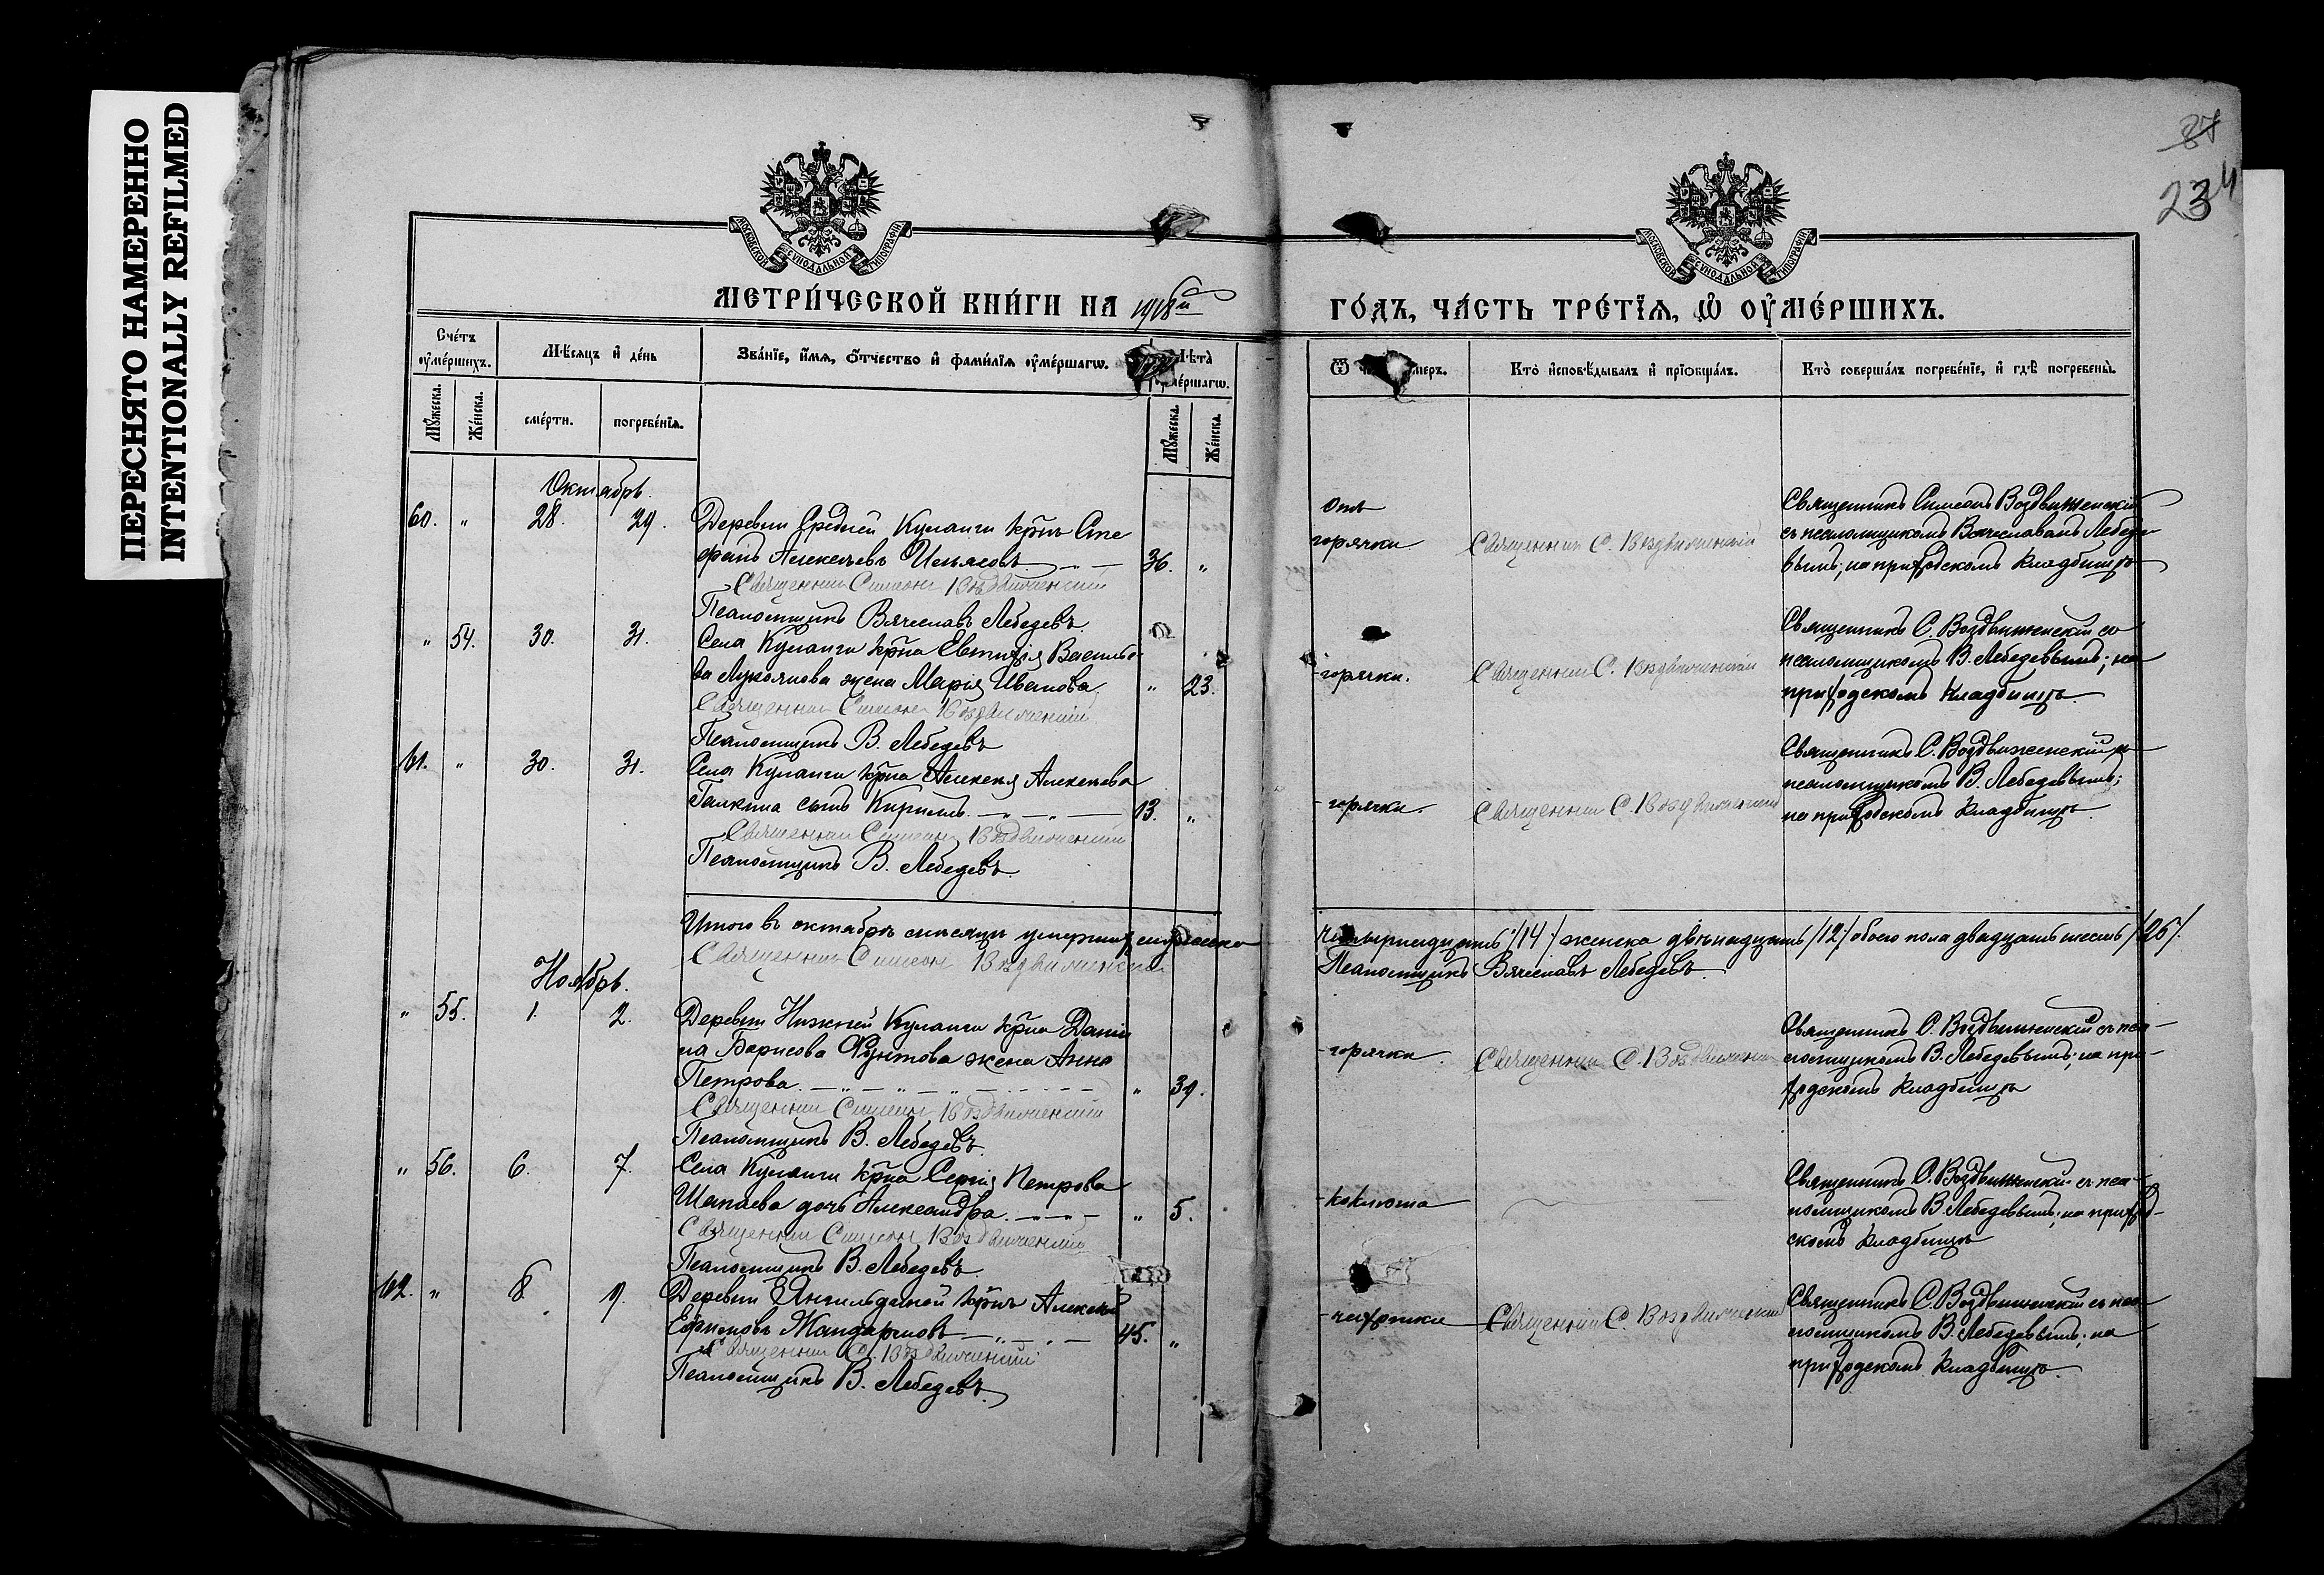 ПЕРЕСНЯТО НАМЕРЕННО
INTENTIONALLY REFILMED
87
234
МОСКОВСКОЙ СѴНОДАЛЬНОЙ ТИПОГРАФІИ
МОСКОВСКОЙ СѴНОДАЛЬНОЙ ТИПОГРАФІИ
МЕТРИ́ЧЕСКОЙ КНИ́ГИ НА 1918й
ГО́ДЪ, ЧА́СТЬ ТРЕ́ТЇѦ, Ѡ҆ ОУ҆МЕ́РШИХЪ.
Сче́тъ
оу҆ме́ршихъ.
Мѣ́сяцъ и҆ де́нь
Зва́нїе, и҆́мѧ, ѻ҆́тчество и҆ фами́лїѧ оу҆ме́ршагѡ.
Лѣ̀та
оу҆ме́ршагѡ.
Мꙋ́жеска.
Же́нска.
сме́рти.
погребе́нїѧ.
Мꙋ́жеска.
Же́нска.
Ѿ
Кто̀ и҆сповѣ́дывалъ и҆ прїѡбща́лъ.
Кто̀ соверша́лъ погребе́нїе, и҆ гдѣ̀ погребены̀.
Октябрь.
60. " 28. 29. Деревни Средней Куланги кр̃нъ Сте
фанъ Алексѣевъ Ильясовъ 36. "
Священник Симеон Воздвиженский
Псаломщикъ Вячеславъ Лебедевъ.
Отъ
горячки.
Священник С. Воздвиженский
Священникъ Симеонъ Воздвиженскій
съ псаломщикомъ Вячеславомъ Лебеде
вымъ; на приходскомъ кладбищѣ
" 54. 30. 31. Села Куланги кр̃на Евтихія Василье
ва Лукоянова жена Марія Иванова. " 23.
Священник Симеон Воздвиженский
Псаломщикъ В. Лебедевъ
горячки.
Священник С. Воздвиженский
Священникъ С. Воздвиженскій со
псаломщикомъ В. Лебедевымъ; на
приходскомъ кладбищѣ.
61. " 30. 31. Села Куланги кр̃на Алексея Алексеева
Галкина сынъ Кириллъ. 13. "
Священник Симеон Воздвиженский
Псаломщикъ В. Лебедевъ.
горячки.
Священник С. Воздвиженский
Священникъ С. Воздвиженскій со
псаломщикомъ В. Лебедевымъ;
на приходскомъ кладбищѣ.
Итого въ октябрѣ мѣсяцѣ умершихъ мужеска
четырнадцать /14/ женска двѣнадцать /12/ обоего пола двадцать шесть /26/.
Священник Симеон Воздвиженский
Псаломщикъ Вячеславъ Лебедевъ.
Ноябрь.
" 55. 1. 2. Деревни Нижней Куланги кр̃на Дании
ла Борисова Фунтова жена Анна
Петрова. " 39.
Священник Симеон Воздвиженский
Псаломщикъ В. Лебедевъ.
горячки.
Священник С. Воздвиженский
Священникъ С. Воздвиженскій съ пса-
ломщикомъ В. Лебедевымъ; на при-
ходскомъ кладбищѣ
" 56. 6. 7. Села Куланги кр̃на Сергія Петрова
Шапаева дочь Александра. " 5.
Священник Симеон Воздвиженский
Псаломщикъ В. Лебедевъ.
коклюша
Священникъ С. Воздвиженскій съ пса-
ломщикомъ В. Лебедевымъ; на приход-
скомъ кладбищѣ
62. " 8. 9. Деревни Янгильдиной кр̃нъ Алексей
Ефимовъ Мандаримовъ 45. "
Священник С. Воздвиженский
Псаломщикъ В. Лебедевъ.
чахотки
Священник С. Воздвиженский
Священникъ С. Воздвиженскій съ пса
ломщикомъ В. Лебедевымъ; на
приходскомъ кладбищѣ.